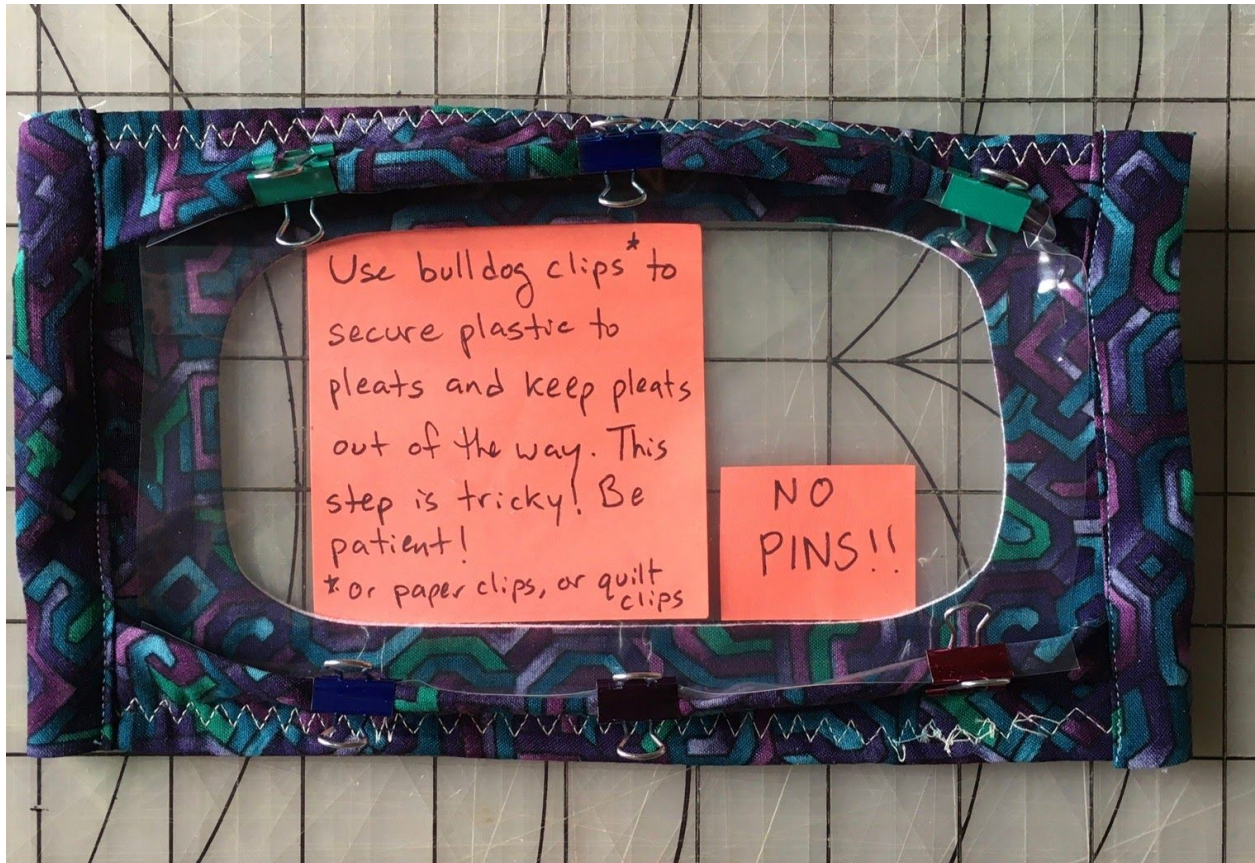 Use bulldog clips* to
secure plastic to
pleats and keep pleats
out of the way. This
step is tricky! Be
patient!
* or paper clips, or quilt
clips
NO
PINS!!